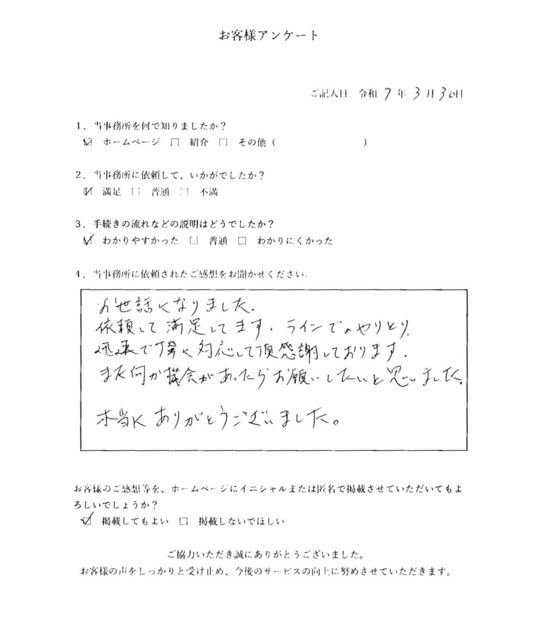 お客様アンケート
ご記入日 令和 7 年 3 月 30日
1．当事務所を何で知りましたか？
☑ ホームページ □ 紹介 □ その他（ ）
2．当事務所に依頼して、いかがでしたか？
☑ 満足 □ 普通 □ 不満
3．手続きの流れなどの説明はどうでしたか？
☑ わかりやすかった □ 普通 □ わかりにくかった
4．当事務所に依頼されたご感想をお聞かせください。
お世話になりました.
依頼して満足してます. ラインでのやりとり
迅速で丁寧く対応して頂感謝しております.
また何か機会があったらお願いしたいと思いました.
本当に ありがとうございました。
お客様のご感想等を、ホームページにイニシャルまたは匿名で掲載させていただいてもよ
ろしいでしょうか？
☑ 掲載してもよい □ 掲載しないでほしい
ご協力いただき誠にありがとうございました。
お客様の声をしっかりと受け止め、今後のサービスの向上に努めさせていただきます。